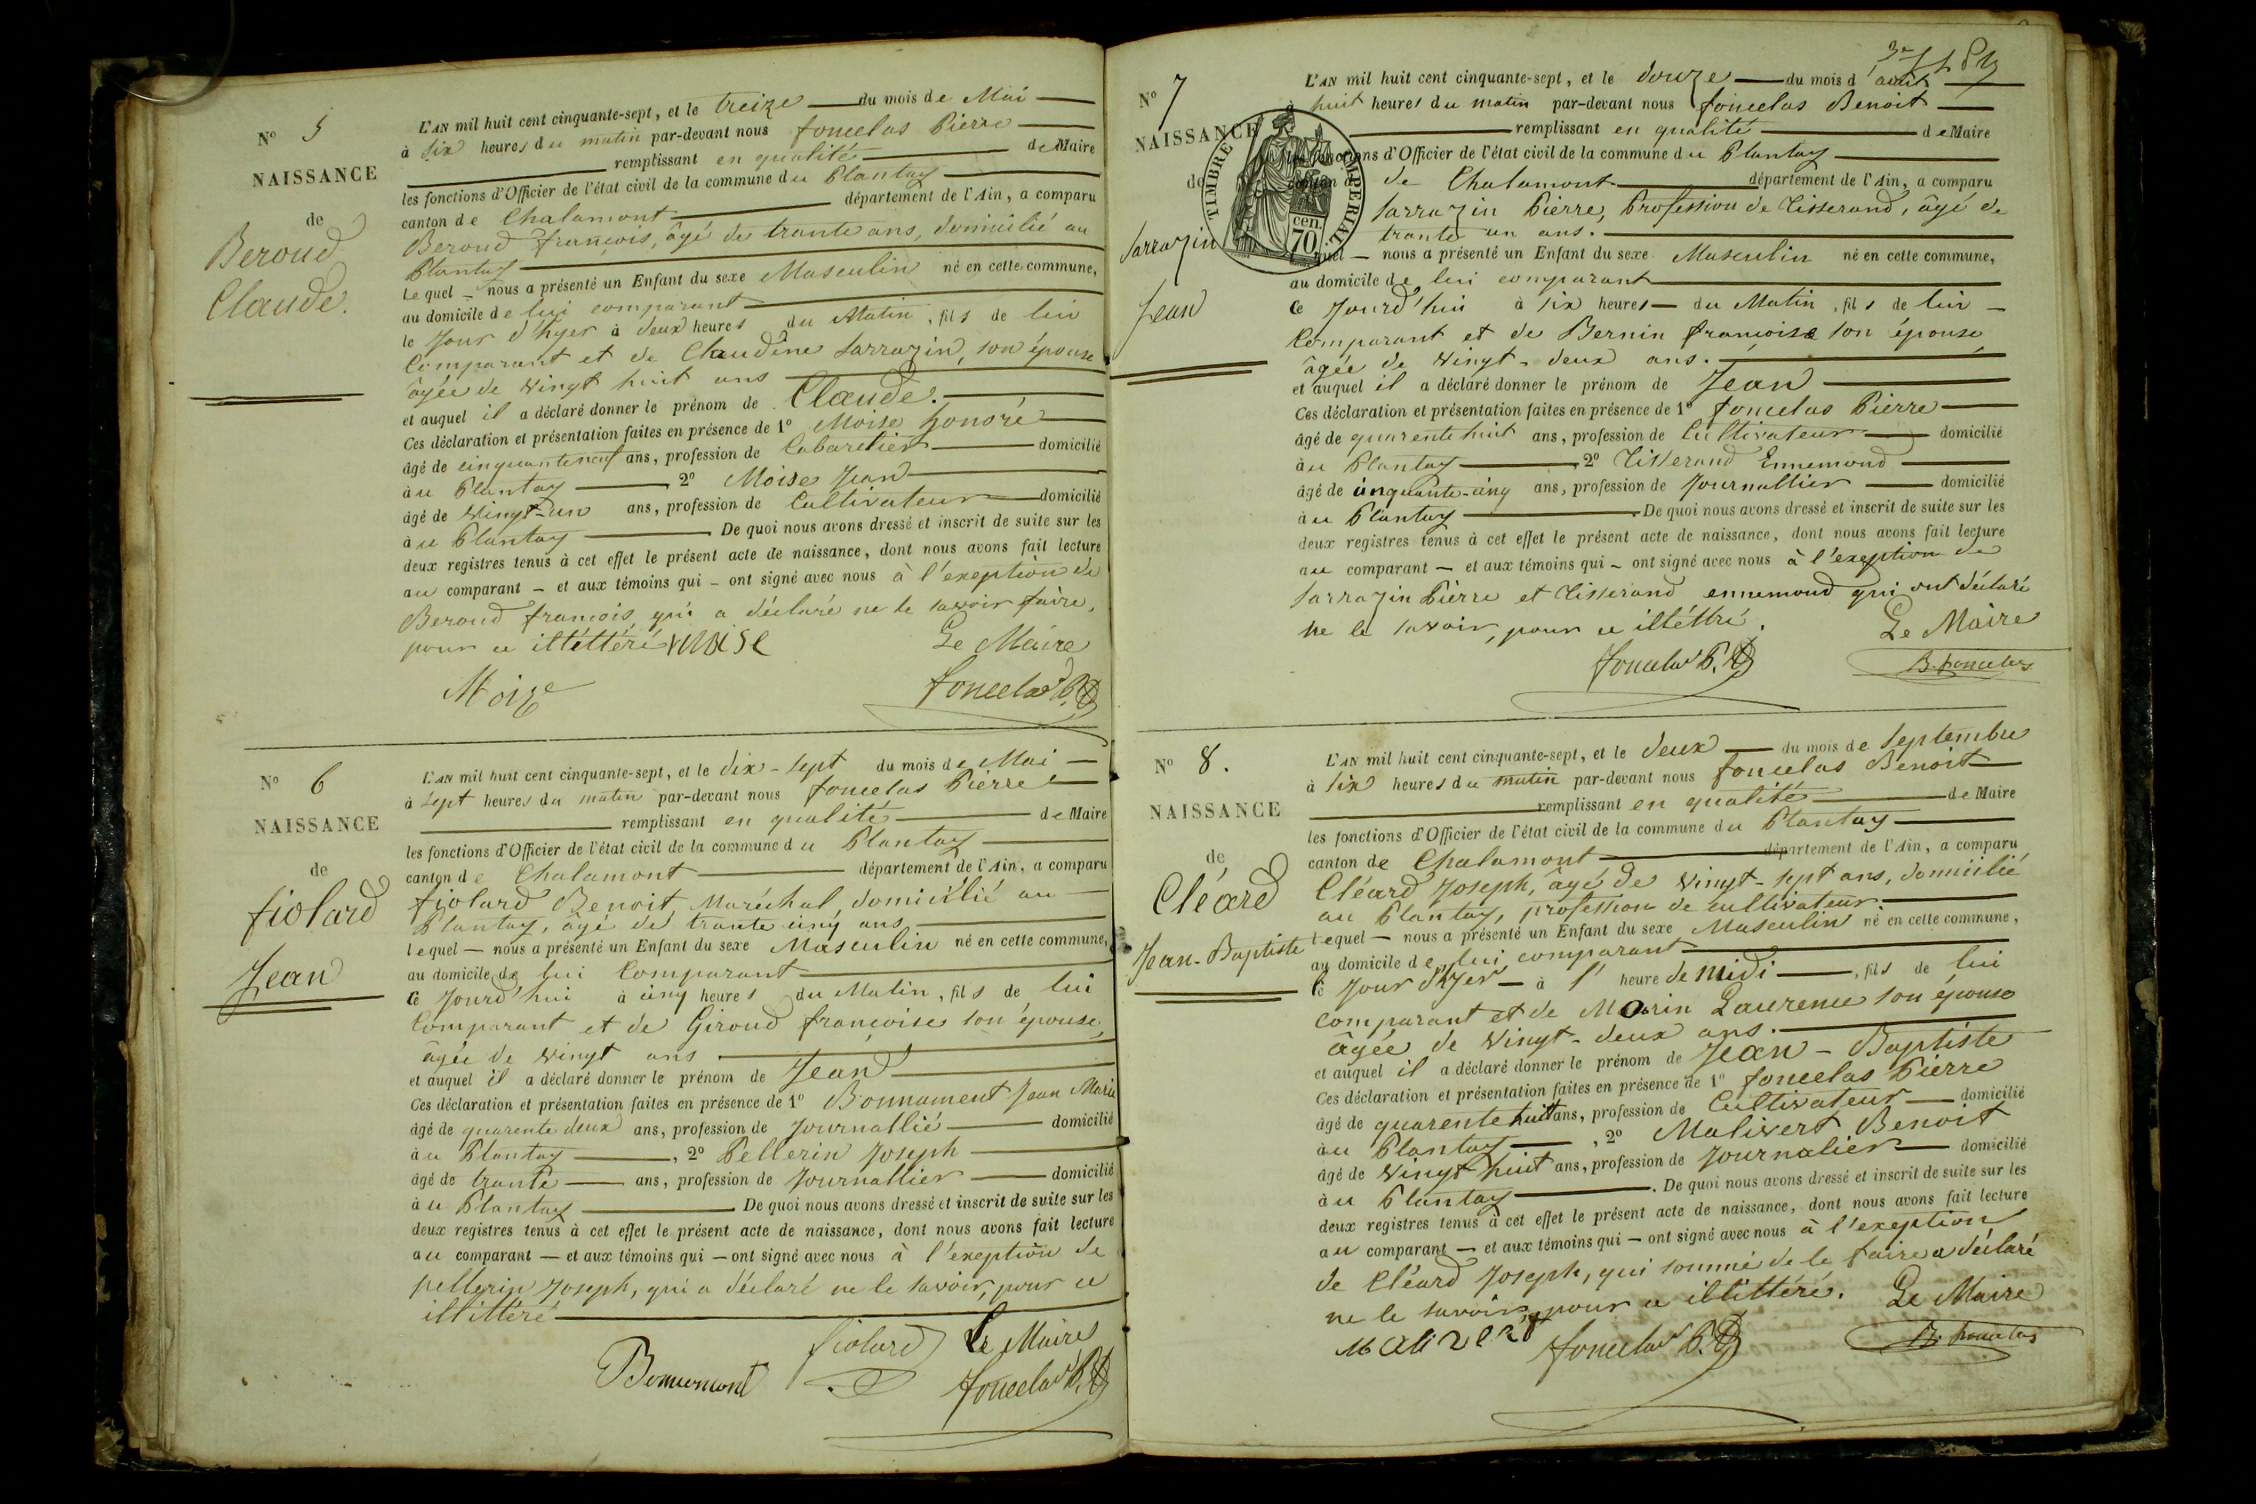 N° 5
NAISSANCE
de
Beroud
Claude.
L'AN mil huit cent cinquante-sept, et le treize du mois de Mai
à six heures du matin par-devant nous fonselas Pierre
remplissant en qualité de Maire
les fonctions d'Officier de l'état civil de la commune du Plantay
canton de Chalamont département de l'Ain, a comparu
Beroud françois, âgé de trante ans, domicilié au
Plantay
Lequel nous a présenté un Enfant du sexe Masculin né en cette commune,
au domicile de lui comparant
le Jour d'hyer à deux heures du Matin, fils de lui
Comparant et de Claudine Sarrazin, son épouse
âgée de vingt huit ans
et auquel il a déclaré donner le prénom de Claude.
Ces déclaration et présentation faites en présence de 1° Moise honoré
âgé de cinquanteneuf ans, profession de Cabaretier domicilié
au Plantay 2° Moise Jean
âgé de vingt-un ans, profession de Cultivateur domicilié
au Plantay De quoi nous avons dressé et inscrit de suite sur les
deux registres tenus à cet effet le présent acte de naissance, dont nous avons fait lecture
au comparant - et aux témoins qui - ont signé avec nous à l'exeption de
Beroud francois, qui a déclaré ne le savoir faire,
pour ce illéttéré moise Le Maire
Moize fonselas P.
N° 6
NAISSANCE
de
fiolard
Jean
L'AN mil huit cent cinquante-sept, et le dix-sept du mois de Mai
à sept heures du matin par-devant nous fonselas Pierre
remplissant en qualité de Maire
les fonctions d'Officier de l'état civil de la commune du Plantay
canton de Chalamont département de l'Ain, a comparu
fiolard Benoit Maréchal, domicilié au
Plantay, âgé de trante cinq ans
Lequel - nous a présenté un Enfant du sexe Masculin né en cette commune,
au domicile de lui Comparant
Ce Jourd'hui à cinq heures du Matin, fils de lui
Comparant et de Giroud françoise son épouse,
âgée de vingt ans
et auquel il a déclaré donner le prénom de Jean
Ces déclaration et présentation faites en présence de 1° Bonnament Jean Marie
âgé de quarente deux ans, profession de Journallié domicilié
au Plantay, 2° Pellerin Joseph
âgé de trante ans, profession de Journallier domicilié
au Plantay De quoi nous avons dressé et inscrit de suite sur les
deux registres tenus à cet effet le présent acte de naissance, dont nous avons fait lecture
au comparant - et aux témoins qui - ont signé avec nous à l'exeption de
pellerin Joseph, qui a déclaré ne le savoir, pour ce
illittéré
fiolard Le Maire
fonselas P.
N° 7
NAISSANCE
de
Sarrazin
Jean
TIMBRE IMPERIAL.
70 cen.
L'AN mil huit cent cinquante-sept, et le douze du mois d'août
à huit heures du matin par-devant nous fonselas Benoit
remplissant en qualité de Maire
les fonctions d'Officier de l'état civil de la commune du Plantay
canton de Chalamont département de l'Ain, a comparu
Sarrazin Pierre, Profession de Tisserand, âgé de
trante un ans.
quel - nous a présenté un Enfant du sexe Masculin né en cette commune,
au domicile de lui comparant
Ce Jourd'hui à six heures du Matin, fils de lui
Comparant et de Bernin françoise son épouse,
âgée de vingt-deux ans.
et auquel il a déclaré donner le prénom de Jean
Ces déclaration et présentation faites en présence de 1° fonselas Pierre
âgé de quarente huit ans, profession de Cultivateur domicilié
au Plantay 2° Tisserand Ennemond
âgé de cinquante-cinq ans, profession de Journallier domicilié
au Plantay De quoi nous avons dressé et inscrit de suite sur les
deux registres tenus à cet effet le présent acte de naissance, dont nous avons fait lecture
au comparant - et aux témoins qui - ont signé avec nous à l'exeption de
Sarrazin Pierre et Tisserand ennemond qui ont déclaré
ne le savoir, pour ce illéttré.
Le Maire
fonselas P. B. fonselas
N° 8.
NAISSANCE
de
Cléard
Jean-Baptiste
L'AN mil huit cent cinquante-sept, et le deux du mois de Septembre
à six heures du matin par-devant nous fonselas Benoit
remplissant en qualité de Maire
les fonctions d'Officier de l'état civil de la commune du Plantay
canton de Chalamont département de l'Ain, a comparu
Cléard Joseph, âgé de vingt-sept ans, domicilié
au Plantay, profession de cultivateur.
Lequel - nous a présenté un Enfant du sexe Masculin né en cette commune,
au domicile de lui comparant
le Jour d'hyer - à l' heure de midi, fils de lui
comparant et de Morin Laurence son épouse
âgée de vingt-deux ans.
et auquel il a déclaré donner le prénom de Jean-Baptiste
Ces déclaration et présentation faites en présence de 1° fonselas Pierre
âgé de quarente huit ans, profession de Cultivateur domicilié
au Plantay, 2° Malivert Benoit
âgé de vingt huit ans, profession de Journalier domicilié
au Plantay. De quoi nous avons dressé et inscrit de suite sur les
deux registres tenus à cet effet le présent acte de naissance, dont nous avons fait lecture
au comparant - et aux témoins qui - ont signé avec nous à l'exeption
de Cléard Joseph, qui sommé de le faire a déclaré
ne le savoir, pour ce illittéré. Le Maire
malivert fonselas P. B. fonselas